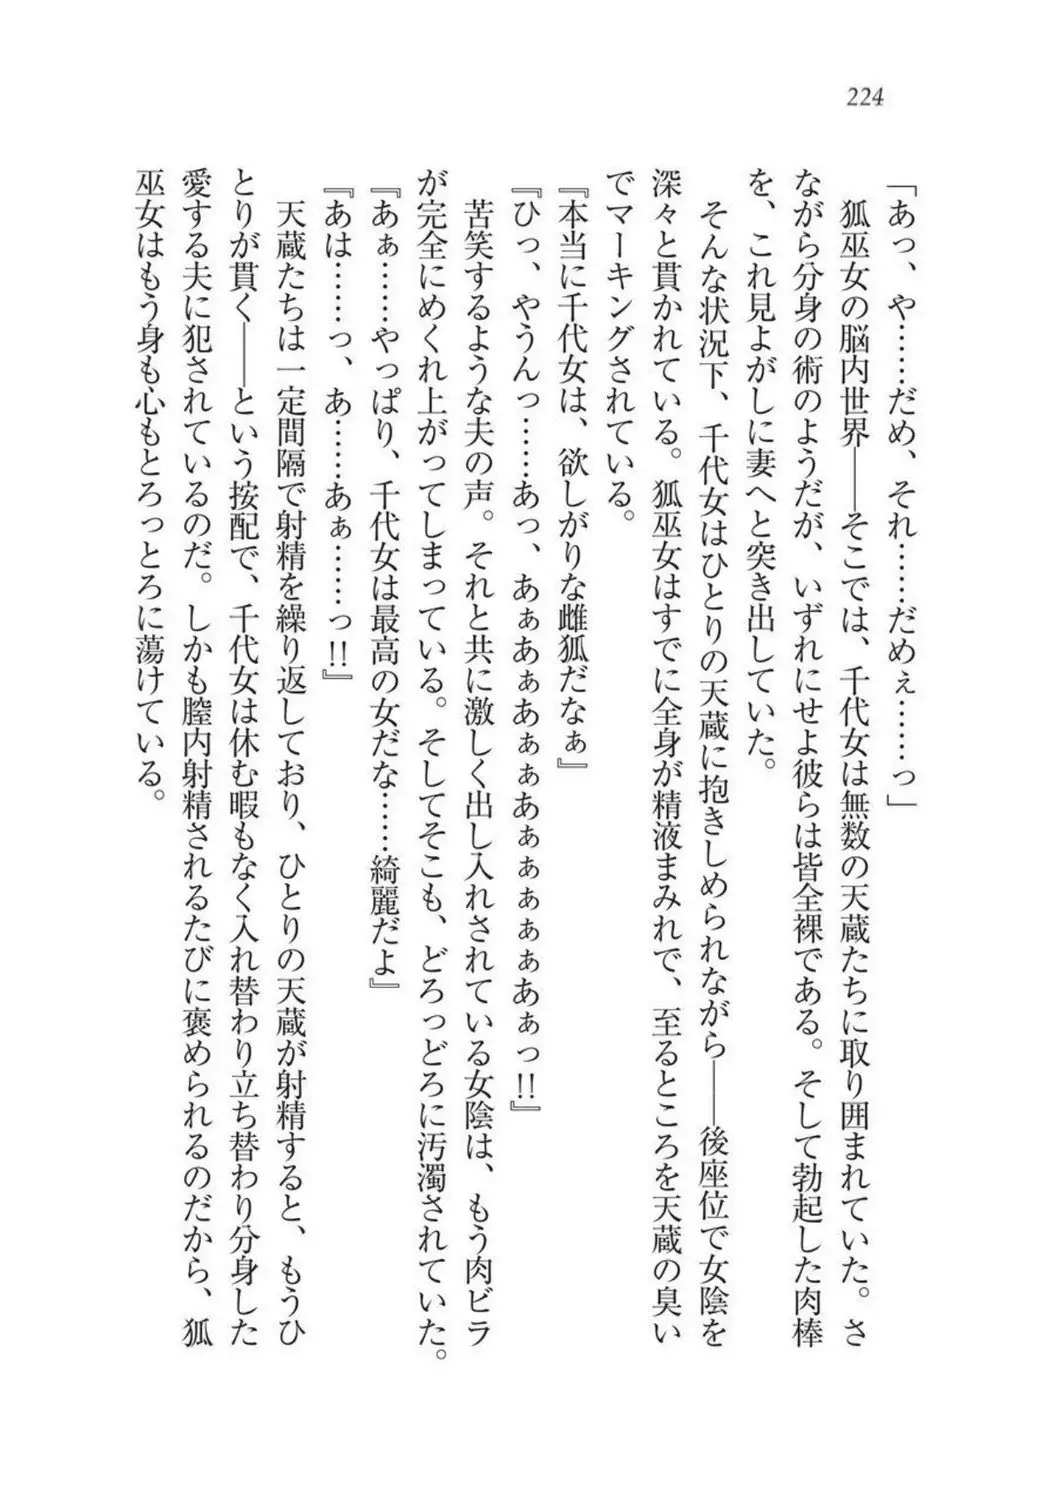 224
「あっ、や……だめ、それ……だめぇ……っ」
　狐巫女の脳内世界――そこでは、千代女は無数の天蔵たちに取り囲まれていた。さ
ながら分身の術のようだが、いずれにせよ彼らは皆全裸である。そして勃起した肉棒
を、これ見よがしに妻へと突き出していた。
　そんな状況下、千代女はひとりの天蔵に抱きしめられながら――後座位で女陰を
深々と貫かれている。狐巫女はすでに全身が精液まみれで、至るところを天蔵の臭い
でマーキングされている。
『本当に千代女は、欲しがりな雌狐だなぁ』
『ひっ、やうんっ……あっ、あぁあぁあぁぁあぁぁぁぁぁあぁっ!!』
　苦笑するような夫の声。それと共に激しく出し入れされている女陰は、もう肉ビラ
が完全にめくれ上がってしまっている。そしてそこも、どろっどろに汚濁されていた。
『あぁ……やっぱり、千代女は最高の女だな……綺麗だよ』
『あは……っ、あ……あぁ……っ!!』
　天蔵たちは一定間隔で射精を繰り返しており、ひとりの天蔵が射精すると、もうひ
とりが貫く――という按配で、千代女は休む暇もなく入れ替わり立ち替わり分身した
愛する夫に犯されているのだ。しかも膣内射精されるたびに褒められるのだから、狐
巫女はもう身も心もとろっとろに蕩けている。